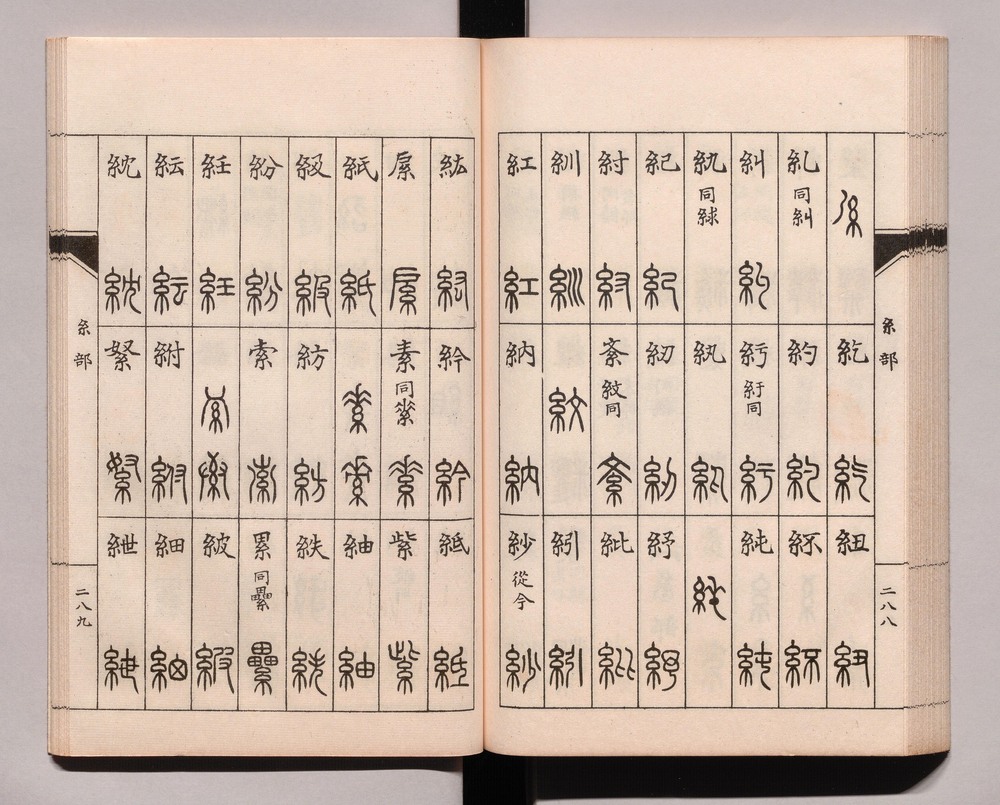 糸部
二八八
糺 同糾
糾
紈 同絿
紀
紂
紃
紅
紇
約
紆 紆同
紈
紉
紊 紋同
納
紐
紑
純
紓
紕
紖
紗 從今
紘
紙
級
紛
紝
紜
紞
紟
素 同䋤
紡
索
紨
紫
紬
紩
累 同纍
紴
細
紲
糸部
二八九